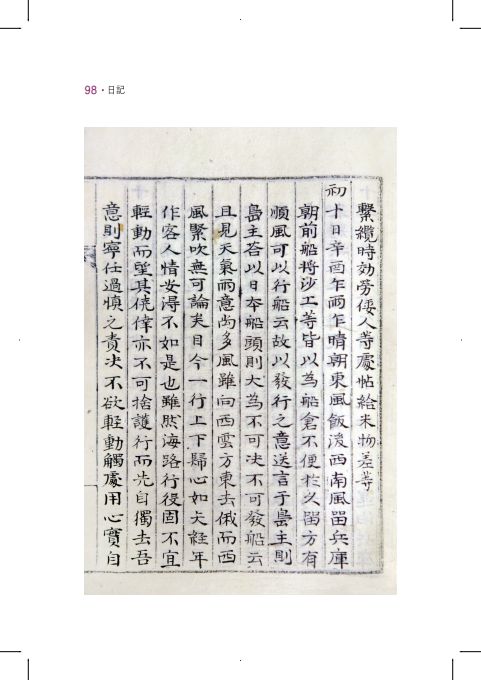 98 • 日記
繫纜時効勞倭人等處帖給米物差等
初十日辛酉乍雨乍晴朝東風飯後西南風留兵庫
朝前船將沙工等皆以為船倉不便於久留方有
順風可以行船云故以發行之意送言于島主則
島主答以日本船頭則大為不可决不可發船云
且見天氣雨意尚多風雖向西雲方東去俄而西
風緊吹無可論矣目今一行上下歸心如矢經年
作客人情安得不如是也雖然海路行役固不宜
輕動而望其僥倖亦不可捨護行而先自獨去吾
意則寧任過愼之責决不欲輕動觸處用心實自